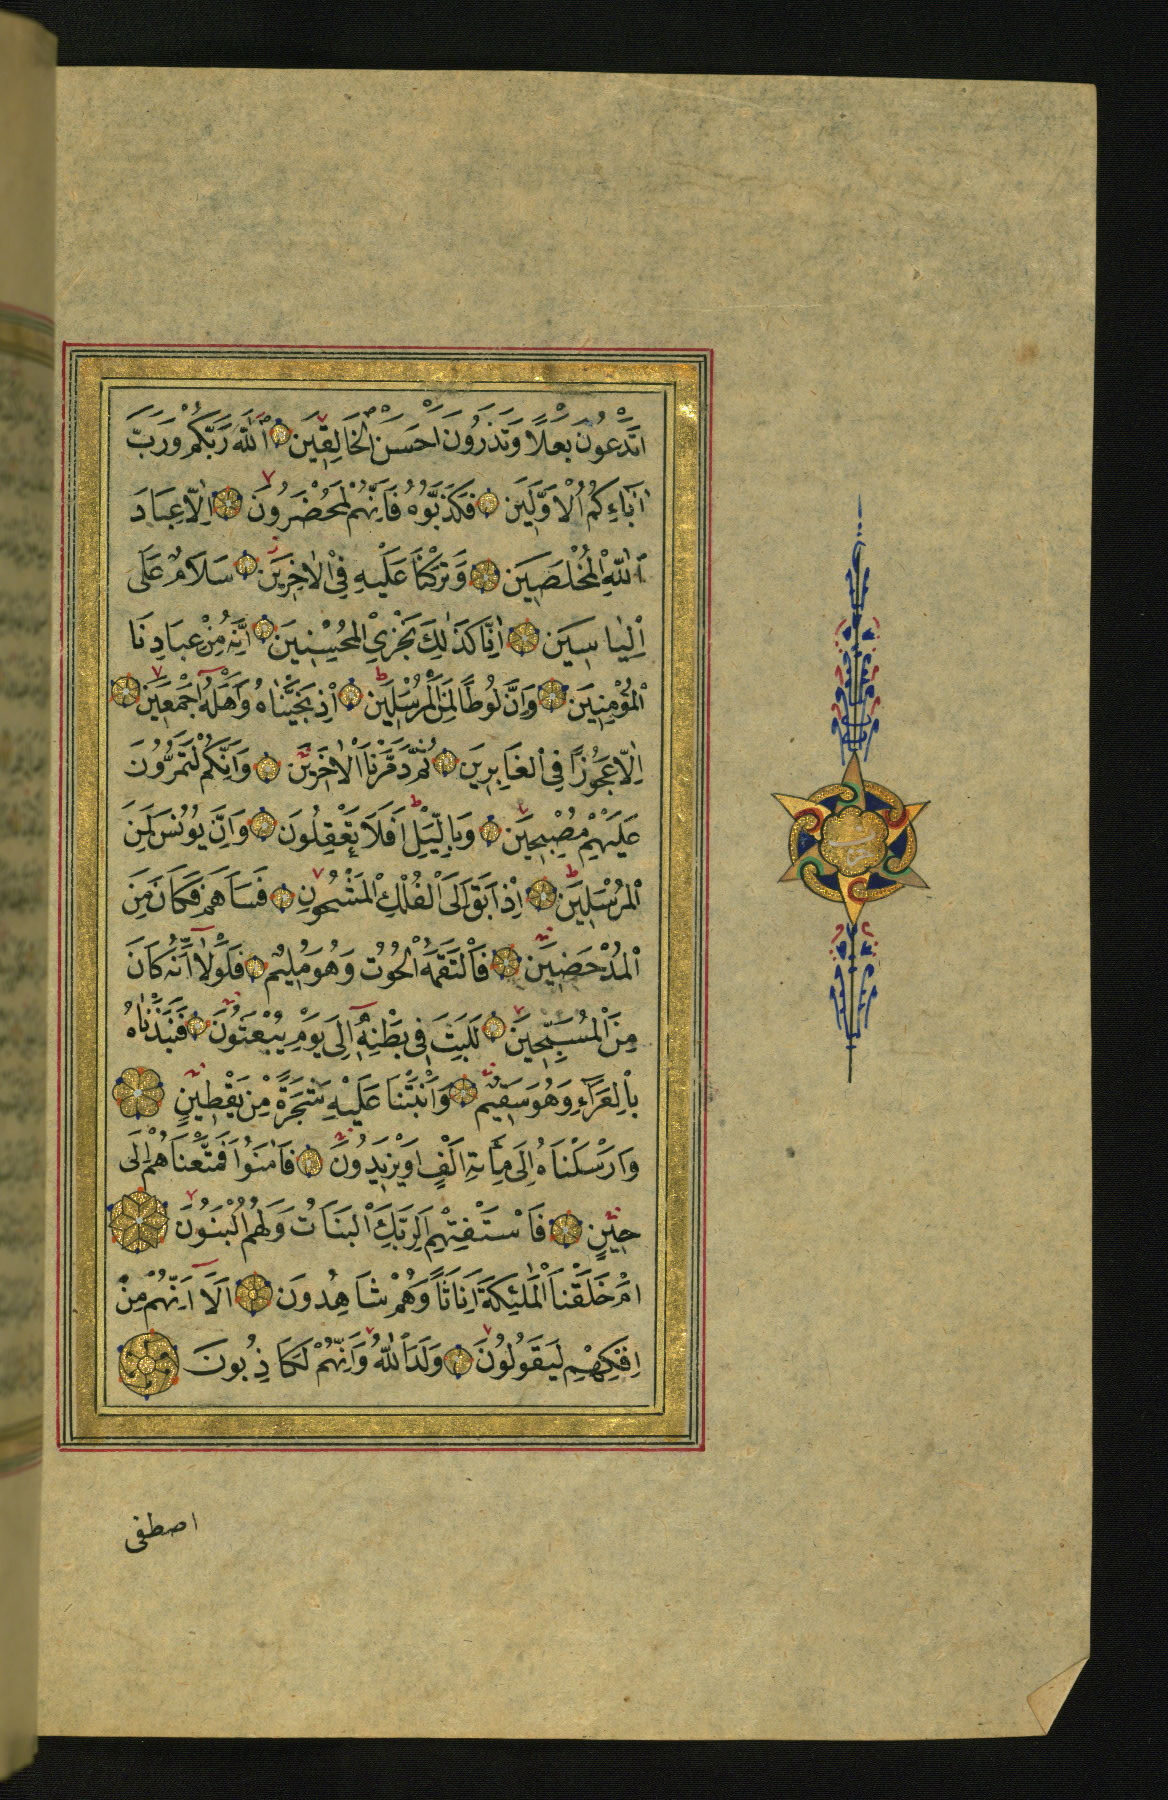 اَتَدْعُونَ بَعْلًا وَتَذَرُونَ اَحْسَنَ الْخَالِقِينَ اَللّٰهَ رَبَّكُمْ وَرَبَّ
اٰبَاءِكُمُ الْاَوَّلِينَ فَكَذَّبُوهُ فَاِنَّهُمْ لَمُحْضَرُونَ اِلَّا عِبَادَ
اللّٰهِ الْمُخْلَصِينَ وَتَرَكْنَا عَلَيْهِ فِي الْاٰخِرِينَ سَلَامٌ عَلٰى
اِلْيَاسِينَ اِنَّا كَذٰلِكَ نَجْزِي الْمُحْسِنِينَ اِنَّهُ مِنْ عِبَادِنَا
الْمُؤْمِنِينَ وَاِنَّ لُوطًا لَمِنَ الْمُرْسَلِينَ اِذْ نَجَّيْنَاهُ وَاَهْلَهُ اَجْمَعِينَ
اِلَّا عَجُوزًا فِي الْغَابِرِينَ ثُمَّ دَمَّرْنَا الْاٰخَرِينَ وَاِنَّكُمْ لَتَمُرُّونَ
عَلَيْهِمْ مُصْبِحِينَ وَبِالَّيْلِ اَفَلَا تَعْقِلُونَ وَاِنَّ يُونُسَ لَمِنَ
الْمُرْسَلِينَ اِذْ اَبَقَ اِلَى الْفُلْكِ الْمَشْحُونِ فَسَاهَمَ فَكَانَ مِنَ
الْمُدْحَضِينَ فَالْتَقَمَهُ الْحُوتُ وَهُوَ مُلِيمٌ فَلَوْلَا اَنَّهُ كَانَ
مِنَ الْمُسَبِّحِينَ لَلَبِثَ فِي بَطْنِهِ اِلٰى يَوْمِ يُبْعَثُونَ فَنَبَذْنَاهُ
بِالْعَرَاءِ وَهُوَ سَقِيمٌ وَاَنْبَتْنَا عَلَيْهِ شَجَرَةً مِنْ يَقْطِينٍ
وَاَرْسَلْنَاهُ اِلٰى مِائَةِ اَلْفٍ اَوْ يَزِيدُونَ فَاٰمَنُوا فَمَتَّعْنَاهُمْ اِلٰى
حِينٍ فَاسْتَفْتِهِمْ اَلِرَبِّكَ الْبَنَاتُ وَلَهُمُ الْبَنُونَ
اَمْ خَلَقْنَا الْمَلٰئِكَةَ اِنَاثًا وَهُمْ شَاهِدُونَ اَلَا اِنَّهُمْ مِنْ
اِفْكِهِمْ لَيَقُولُونَ وَلَدَ اللّٰهُ وَاِنَّهُمْ لَكَاذِبُونَ
اصطفى